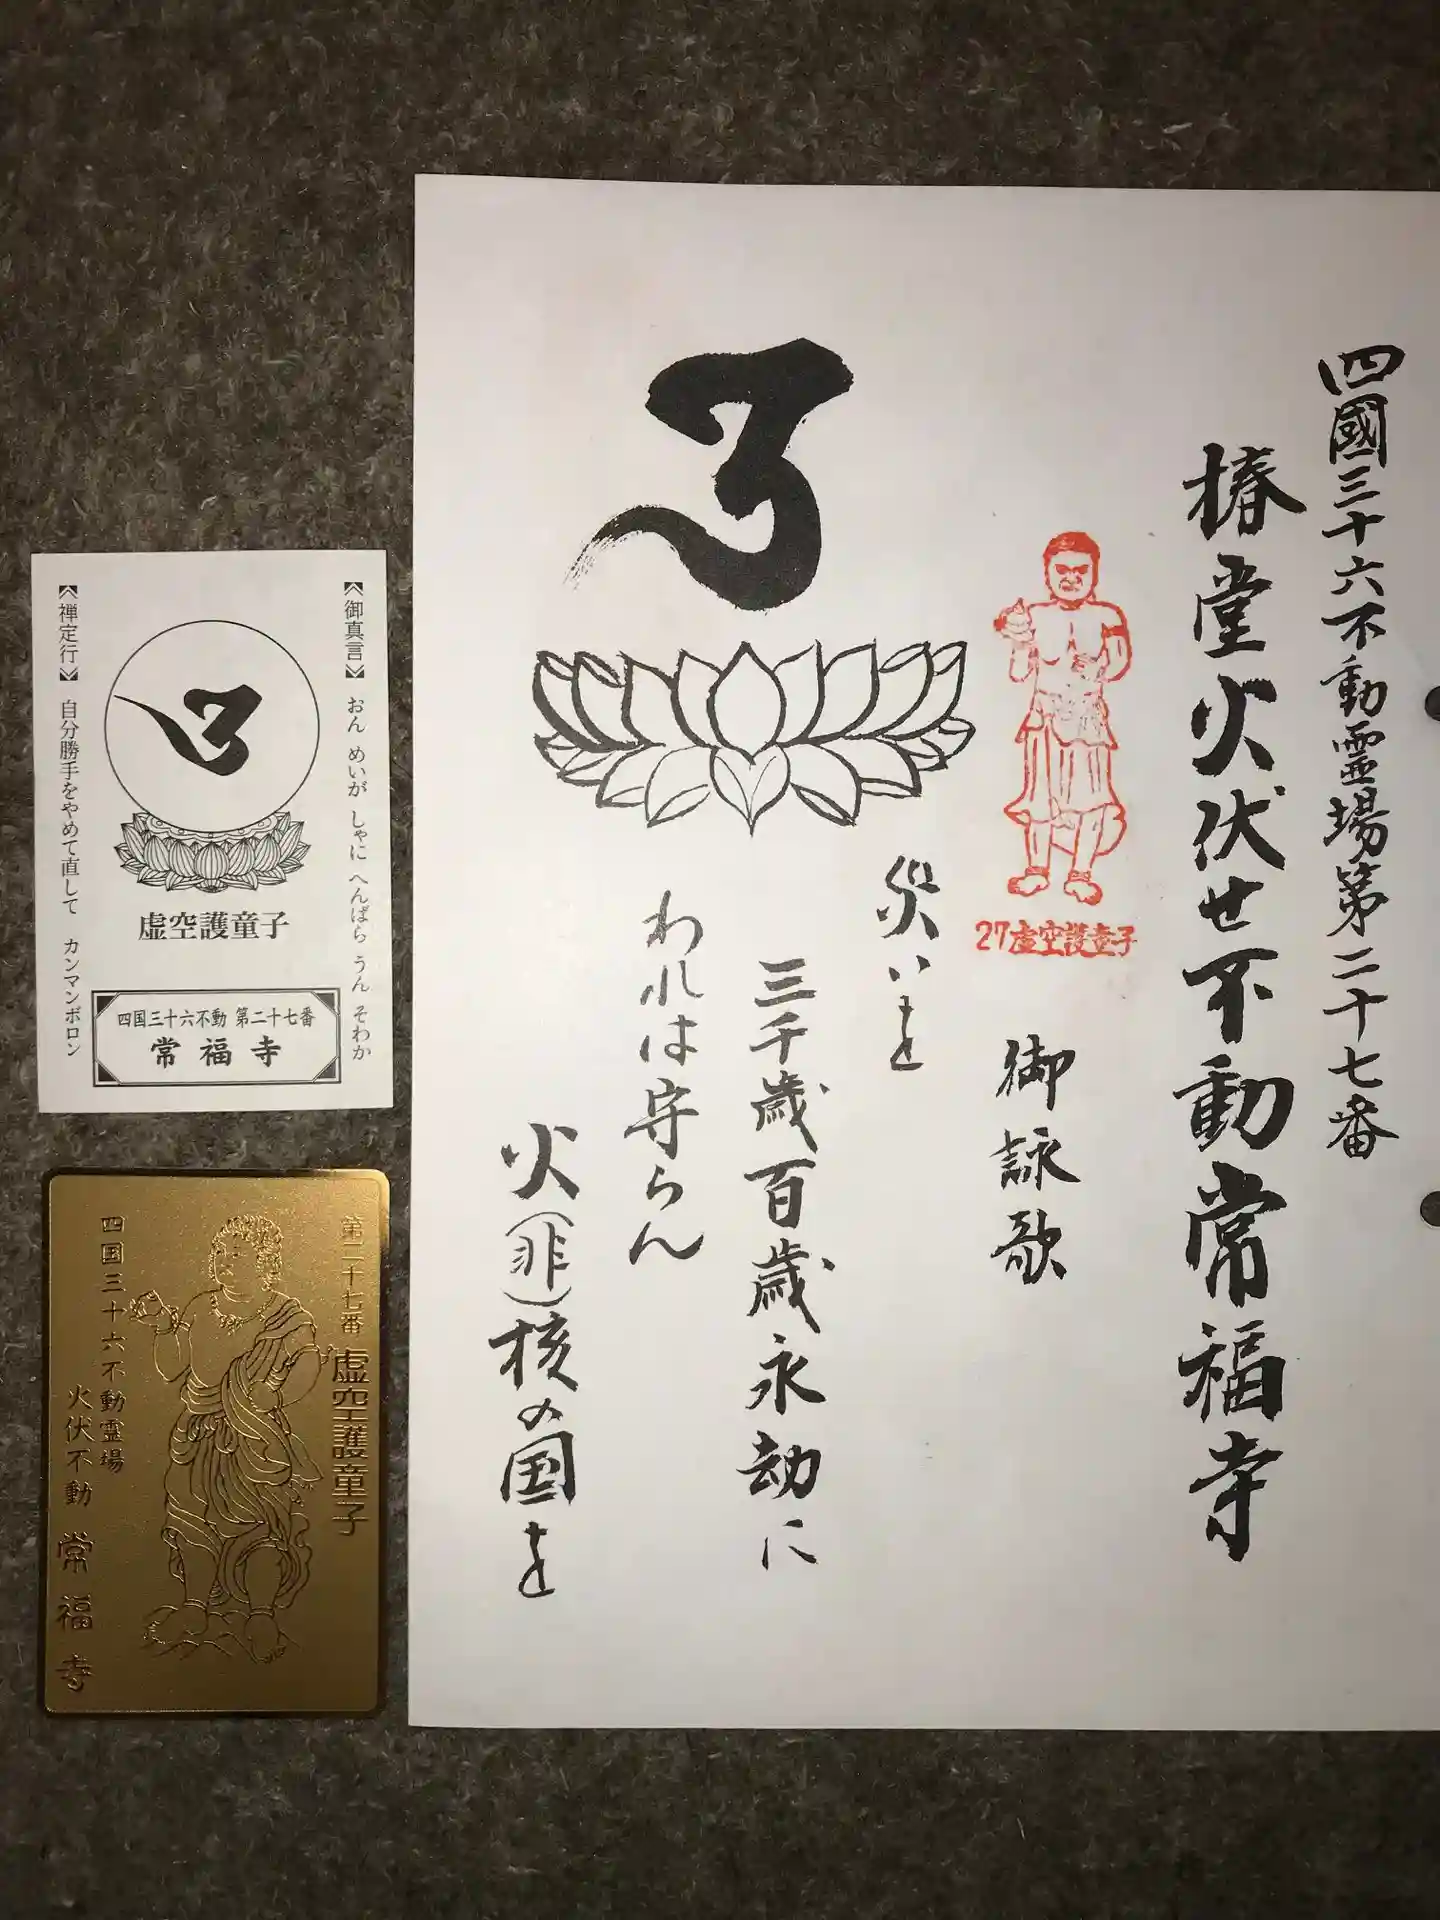 四國三十六不動霊場第二十七番
椿堂火伏せ不動常福寺
27虚空護童子
御詠歌
災いを
三千歳百歳永劫に
われは守らん
火(非)核の国を
≪御真言≫ おん めいが しゃに へんばら うん そわか
虚空護童子
四国三十六不動 第二十七番
常福寺
≪禅定行≫ 自分勝手をやめて直して カンマンボロン
第二十七番 虚空護童子
四国三十六不動霊場
火伏不動 常福寺